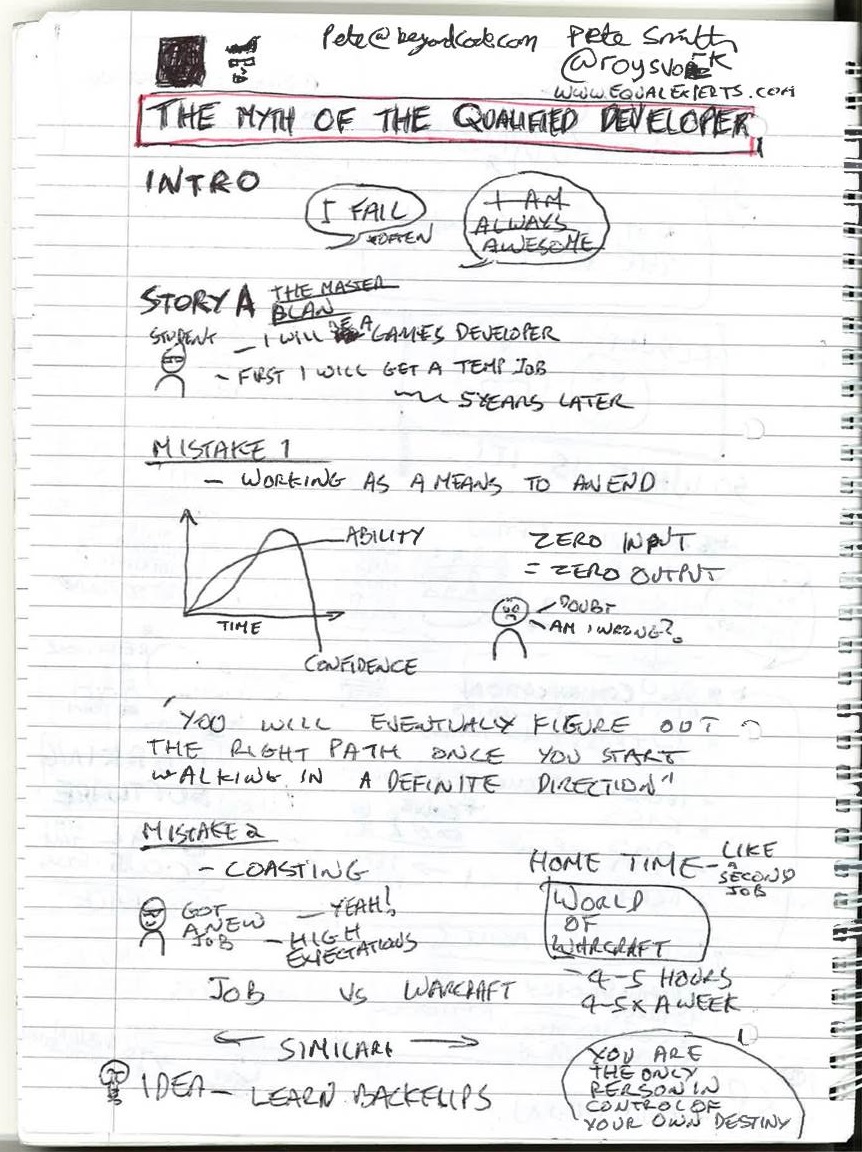 Pete@beyondcode.com
Pete Smith
@roysvork
WWW.EQUALEXPERTS.COM
THE MYTH OF THE QUALIFIED DEVELOPER
INTRO
I FAIL
*OFTEN
I AM
ALWAYS
AWESOME
STORY A THE MASTER
BLAN
STUDENT
- I WILL BE A GAMES DEVELOPER
- FIRST I WILL GET A TEMP JOB
5 YEARS LATER
MISTAKE 1
- WORKING AS A MEANS TO AN END
ABILITY
TIME
CONFIDENCE
ZERO INPUT
= ZERO OUTPUT
DOUBT
AM I WRONG?
"YOU WILL EVENTUALLY FIGURE OUT
THE RIGHT PATH ONCE YOU START
WALKING IN A DEFINITE DIRECTION"
MISTAKE 2
- COASTING
GOT
A NEW
JOB
- YEAH!
- HIGH
EXPECTATIONS
HOME TIME - LIKE
A
SECOND
JOB
WORLD
OF
WARCRAFT
- 4-5 HOURS
4-5 X A WEEK
JOB VS WARCRAFT
← SIMILAR →
IDEA - LEARN BACKFLIPS
YOU ARE
THE ONLY
PERSON IN
CONTROL OF
YOUR OWN DESTINY